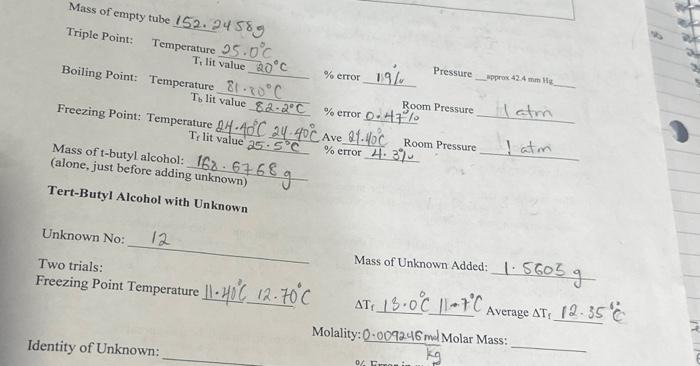 Mass of empty tube 152.2458g
Triple Point: Temperature 25.0°C
Tt lit value 20°C % error 19% Pressure approx 42.4 mm Hg
Boiling Point: Temperature 81.80°C
Tb lit value 82.2°C % error 0.47% Room Pressure 1 atm
Freezing Point: Temperature 24.40°C 24.40°C Ave 24.40°C Room Pressure 1 atm
Tf lit value 25.5°C % error 4.3%
Mass of t-butyl alcohol: 168.6768 g
(alone, just before adding unknown)
Tert-Butyl Alcohol with Unknown
Unknown No: 12 Mass of Unknown Added: 1.5605 g
Two trials:
Freezing Point Temperature 11.40°C 12.70°C ΔTf 13.0°C 11.7°C Average ΔTf 12.35°C
Molality: 0.009246 mol/kg Molar Mass:
Identity of Unknown: